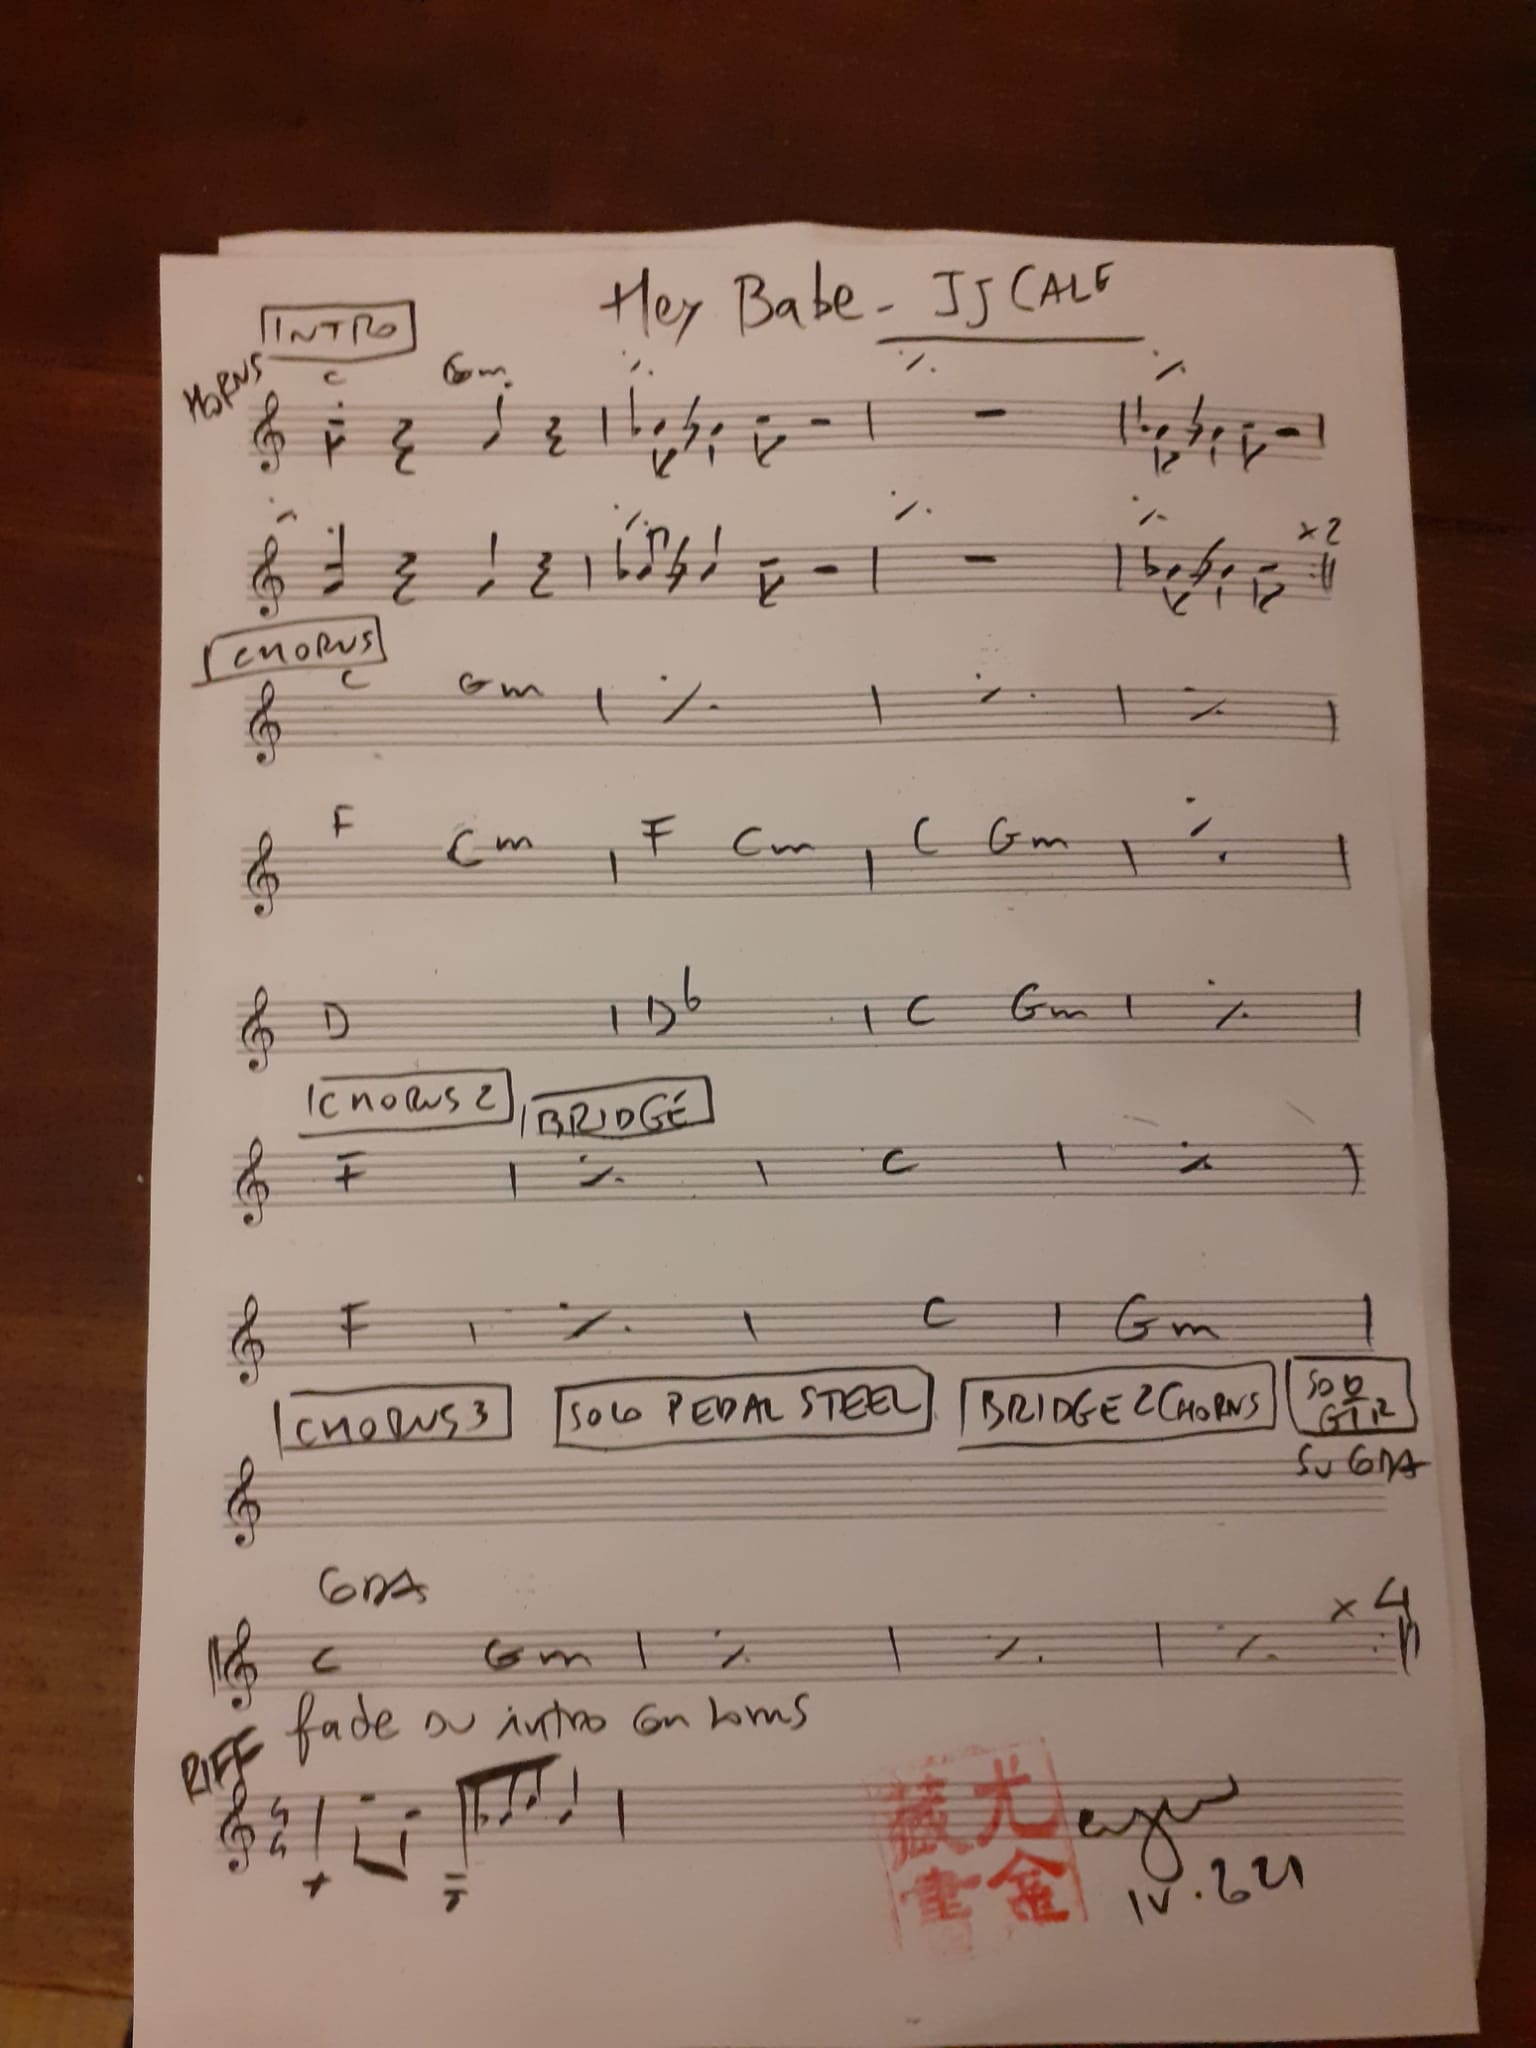 Hey Babe - JJ CALE
INTRO
HORNS
C Gm ٪ ٪ ٪
٪ ٪ ٪ ٪ x2
CHORUS
C Gm | ٪ | ٪ | ٪ |
F Cm | F Cm | C Gm | ٪ |
D | Db | C Gm | ٪ |
CHORUS 2 BRIDGE
F | ٪ | C | ٪ |
F | ٪ | C | Gm |
CHORUS 3 SOLO PEDAL STEEL BRIDGE 2 CHORUS SOLO GTR
SU CODA
CODA
x4
C Gm | ٪ | ٪ | ٪
fade su intro con horns
RIFF
尤金
藏書
IV.